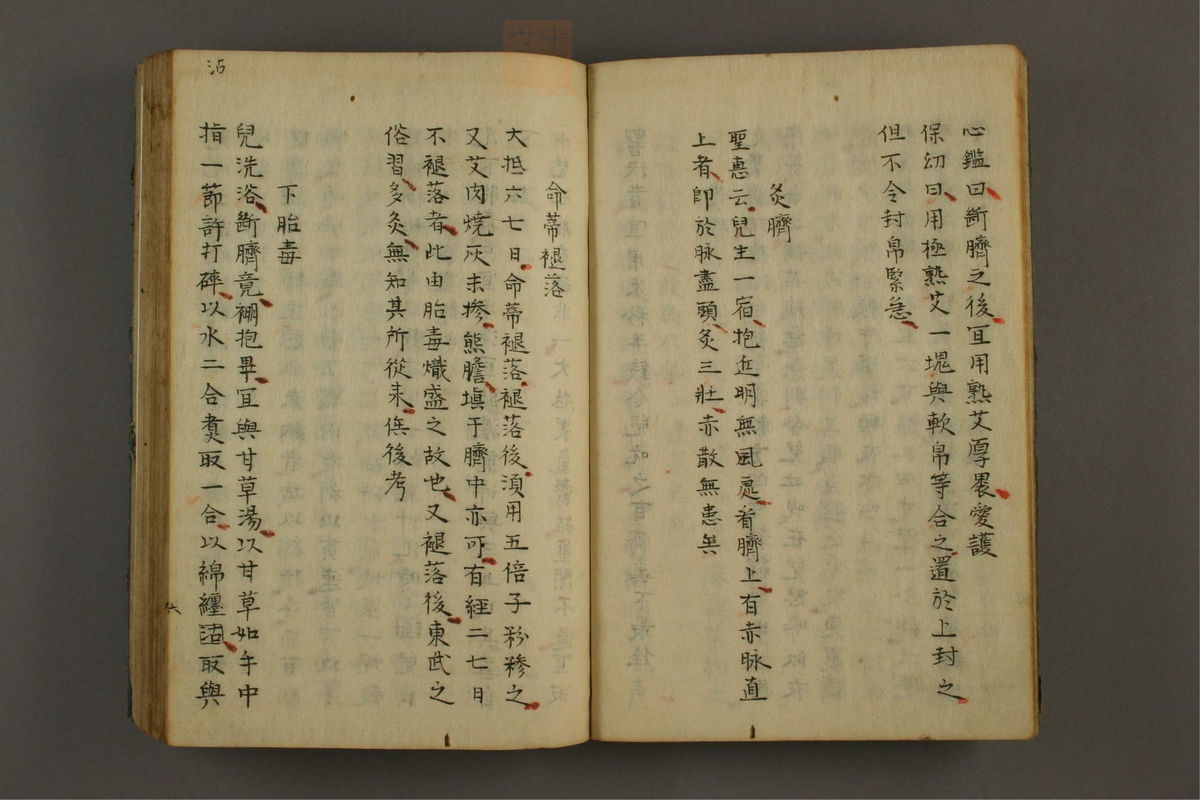 心鑑曰斷臍之後冝用熟艾厚褁愛護
保幼曰用極熟艾一塊與軟帛等合之置於上封之
但不令封帛緊急
灸臍
聖惠云兒生一宿抱近明無風處看臍上有赤脉直
上者卽於脉盡頭灸三壯赤散無患矣
命蒂褪落
大抵六七日命蒂褪落褪落後湏用五倍子粉糝之
又艾肉燒灰末摻熊膽塡于臍中亦可有経二七日
不褪落者此由胎毒熾盛之故也又褪落後東武之
俗習多灸無知其所從来俟後考
下胎毒
兒洗浴斷臍竟襉抱畢冝與甘草湯以甘草如手中
指一節許打碎以水二合煑取一合以綿纏 取與
沾